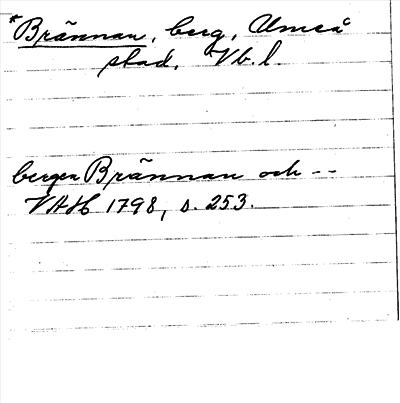 *Brännan, berg, Umeå
stad, Vb. l.
bergen Brännan och --
VAH 1798, s. 253.